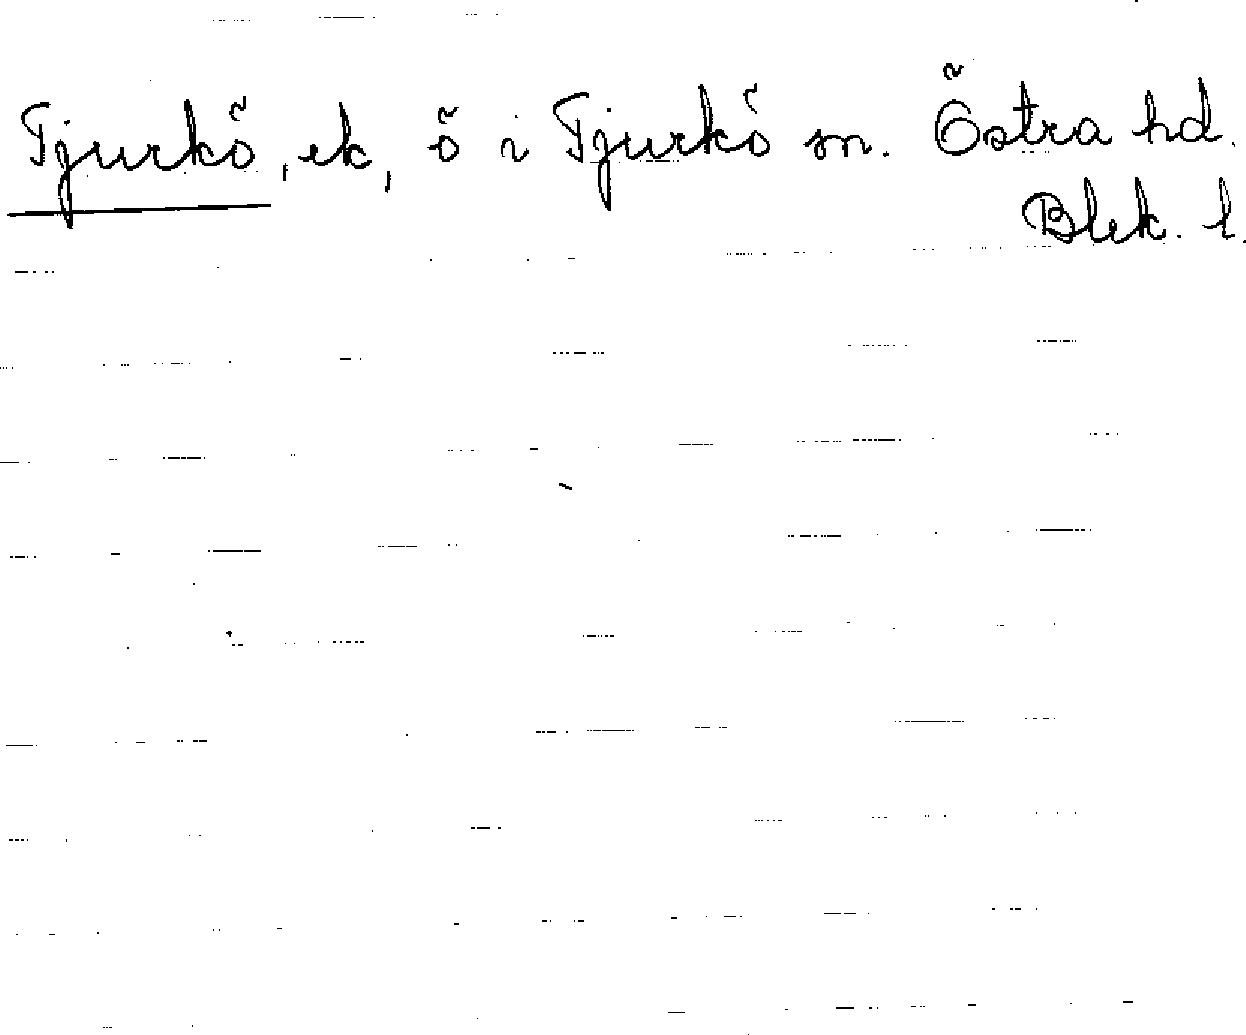 Tjurkö, ek, ö i Tjurkö sn. Östra hd.
Blek. l.